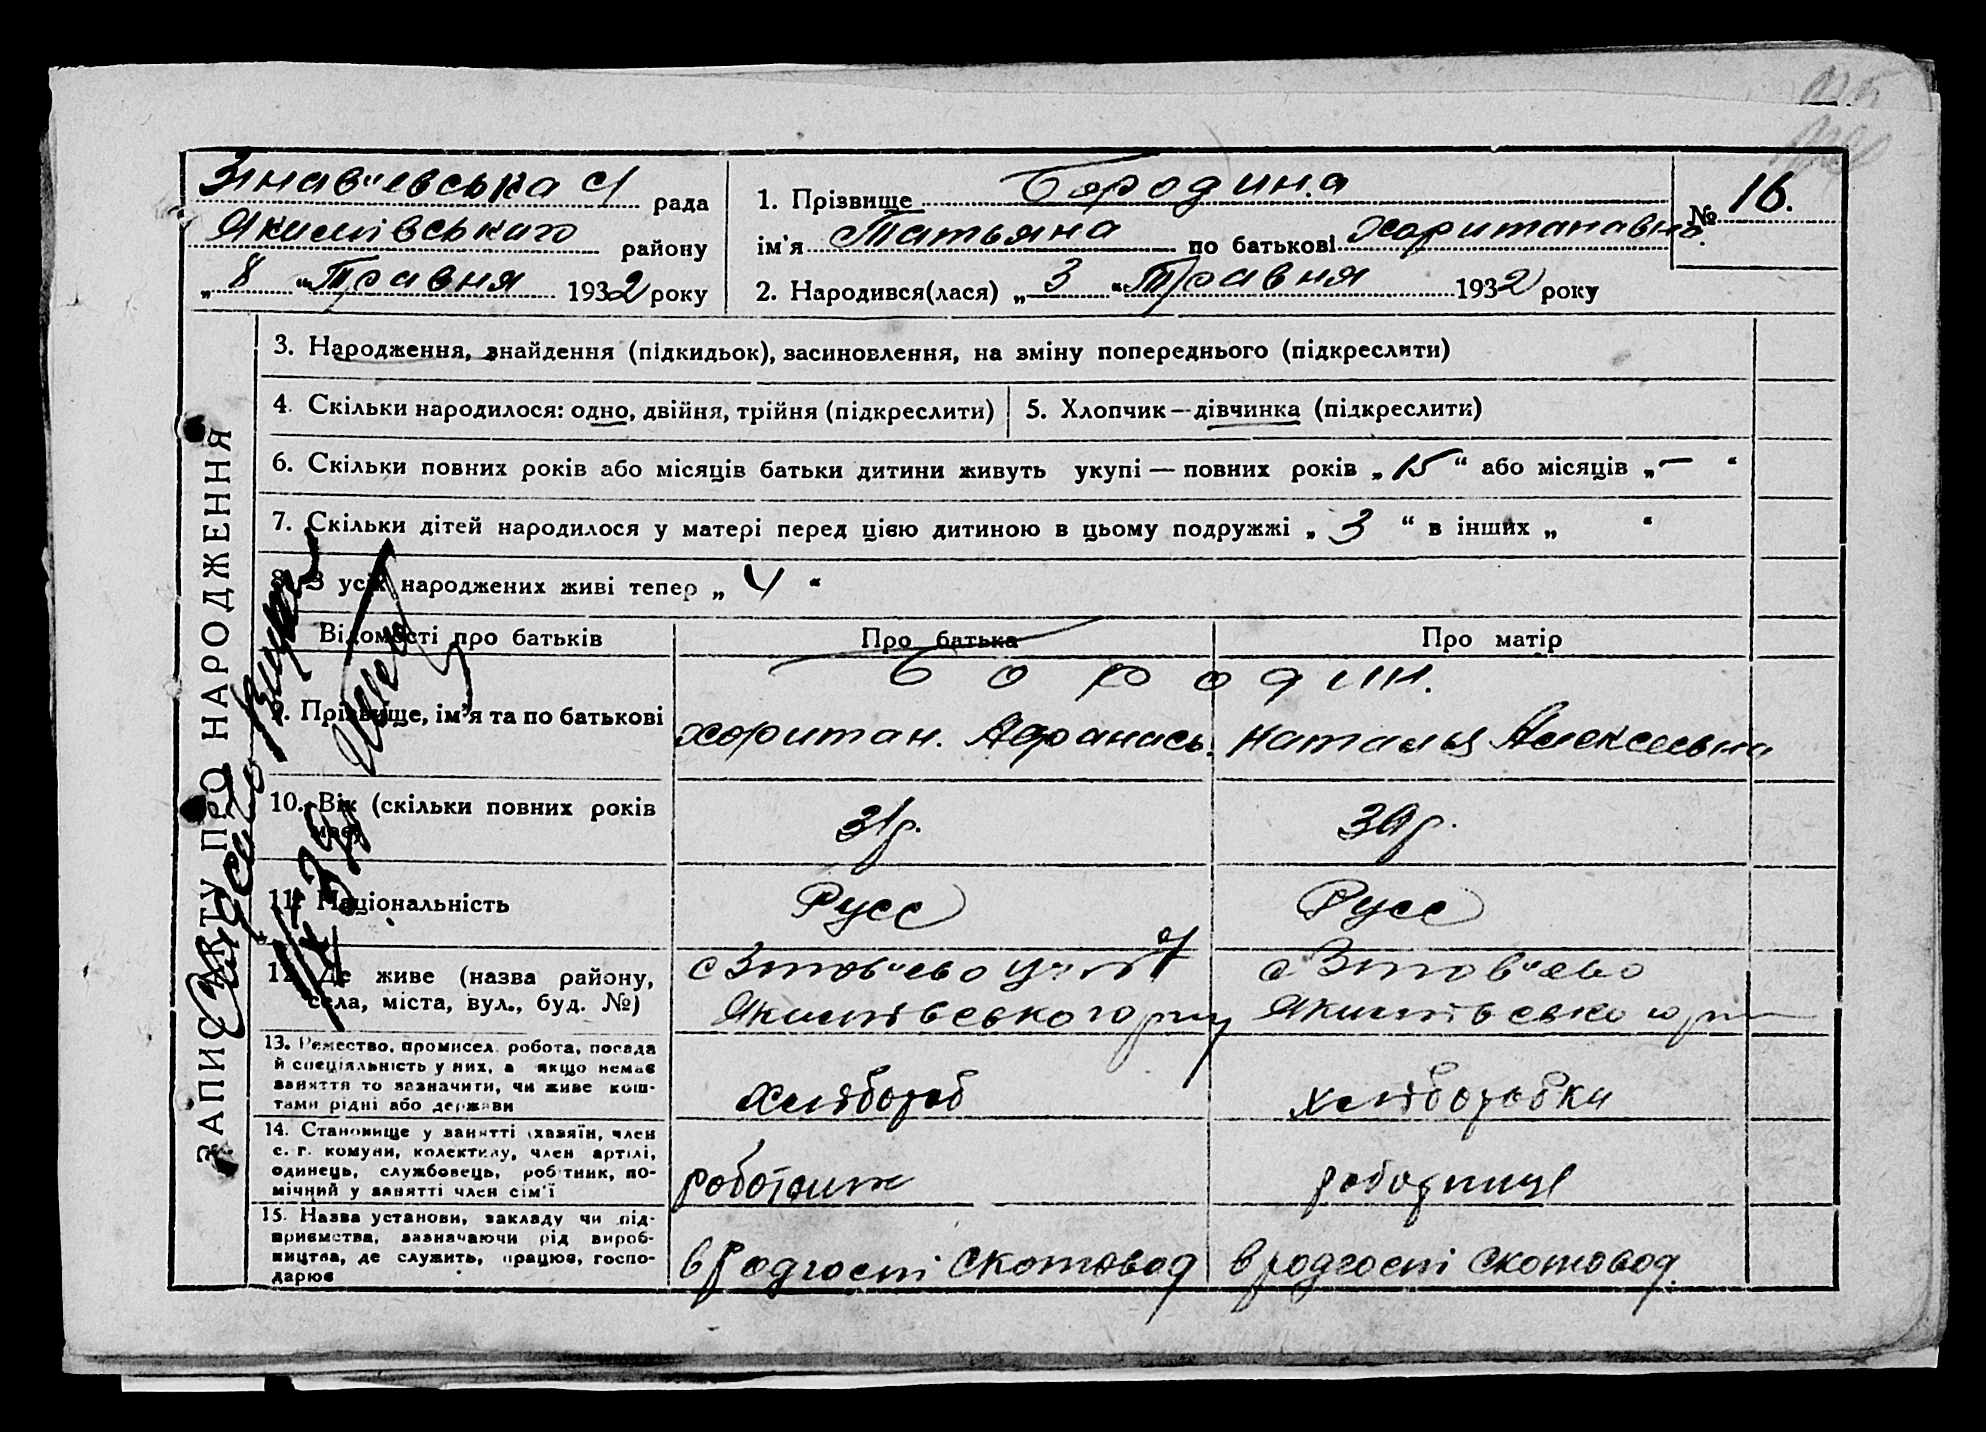 Знавіевська с/ рада
Якимівського району
„ 8 “ Травня 1932 року
1. Прізвище Бородина
ім'я Татьяна по батькові Харитановна
2. Народився(лася) „ 3 “ Травня 1932 року
№ 16.
ЗАПИС АКТУ ПРО НАРОДЖЕННЯ
3. Народження, знайдення (підкидьок), засиновлення, на зміну попереднього (підкреслити)
4. Скільки народилося: одно, двійня, трійня (підкреслити)
5. Хлопчик — дівчинка (підкреслити)
6. Скільки повних років або місяців батьки дитини живуть укупі — повних років „ 15 “ або місяців „ — “
7. Скільки дітей народилося у матері перед цією дитиною в цьому подружжі „ 3 “ в інших „ “
8. З усіх народжених живі тепер „ 4 “
Відомості про батьків
Про батька
Про матір
9. Прізвище, ім'я та по батькові
Бородин.
Харитан. Афанась.
Наталья Алексеевна
10. Вік (скільки повних років
має)
31 р.
39 р.
11. Національність
Русс
Русс
12. Де живе (назва району,
села, міста, вул., буд. №)
Якимівського р-ну
Якимівського р-ну
13. Ремество, промисел, робота, посада
й спеціяльність у них, а якщо немає
заняття то зазначити, чи живе кош-
тами рідні або держави
Хлібороб
хлібороbки
14. Становище у занятті (хазяїн, член
с. г. комуни, колективу, член артілі,
одинець, службовець, робітник, по-
мічний у занятті член сім'ї
роботник
роботниця
15. Назва установи, закладу чи під-
приємства, зазначаючи рід вироб-
ництва, де служить, працює, госпо-
дарює
в Радгоспі Скотовод
в радгоспі Скотовод.